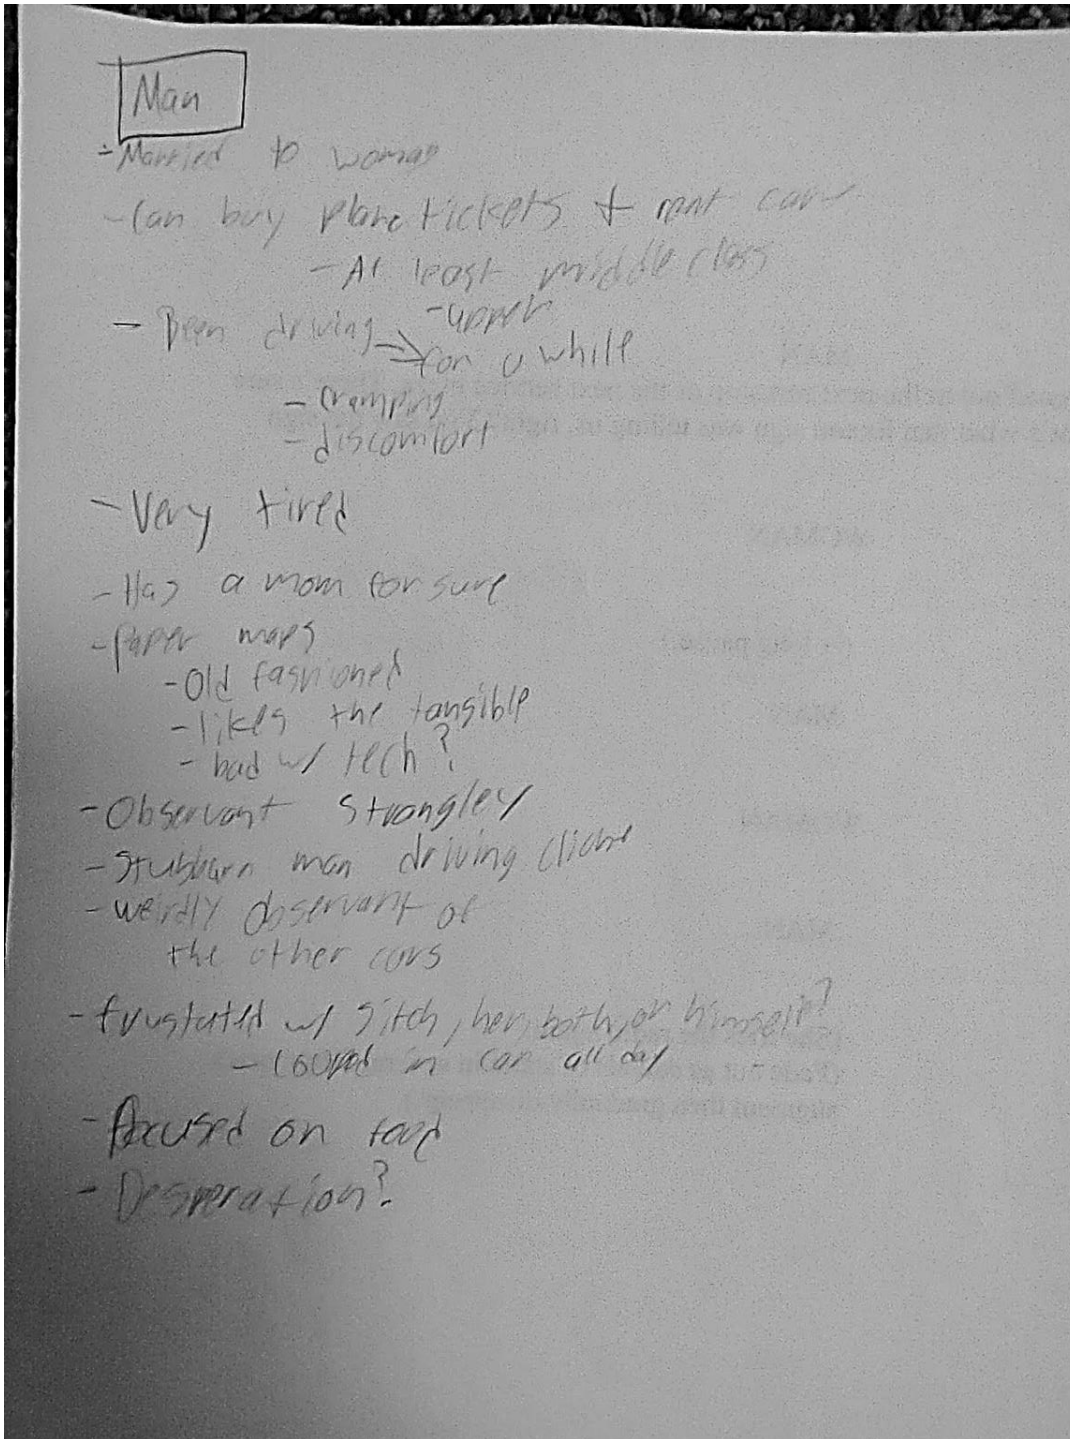 Man
- Married to woman
- Can buy plane tickets + rent car
- At least middle class
- upper
- Been driving => for a while
- cramping
- discomfort
- Very tired
- Has a mom for sure
- Paper maps
- Old fashioned
- likes the tangible
- bad w/ tech?
- Observant strangley
- Stubborn man driving cliche
- weirdly observant of
the other cars
- frustated w/ sitch, her, both, or himself?
- in car all day
- Focused on road
- Desperation?
MAN
MAN